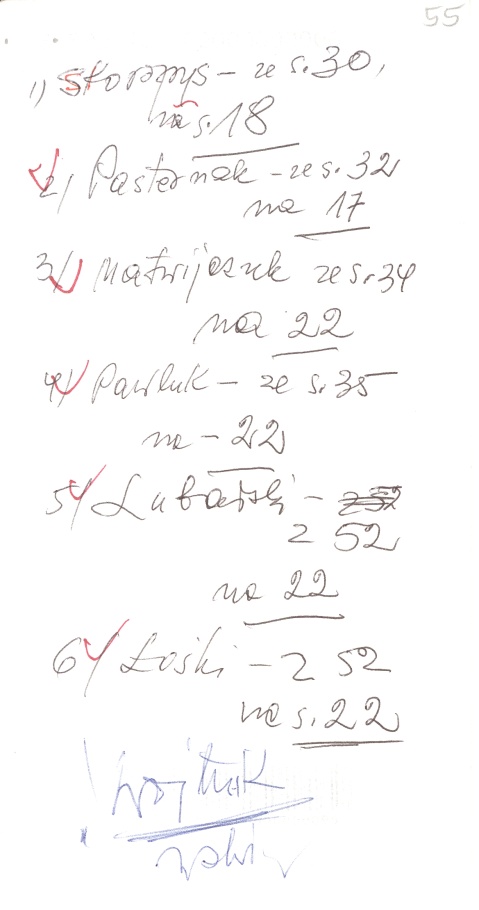 55
1) Skorzys - ze s. 30,
na s. 18
2) Pasternak - ze s. 32
na 17
3) Matwijeszuk ze s. 34
na 22
4) Pawluk - ze s. 35
na - 22
5) Lubański - z 52
z 52
na 22
6) Łoski - z 52
na s. 22
! Wojtiuk